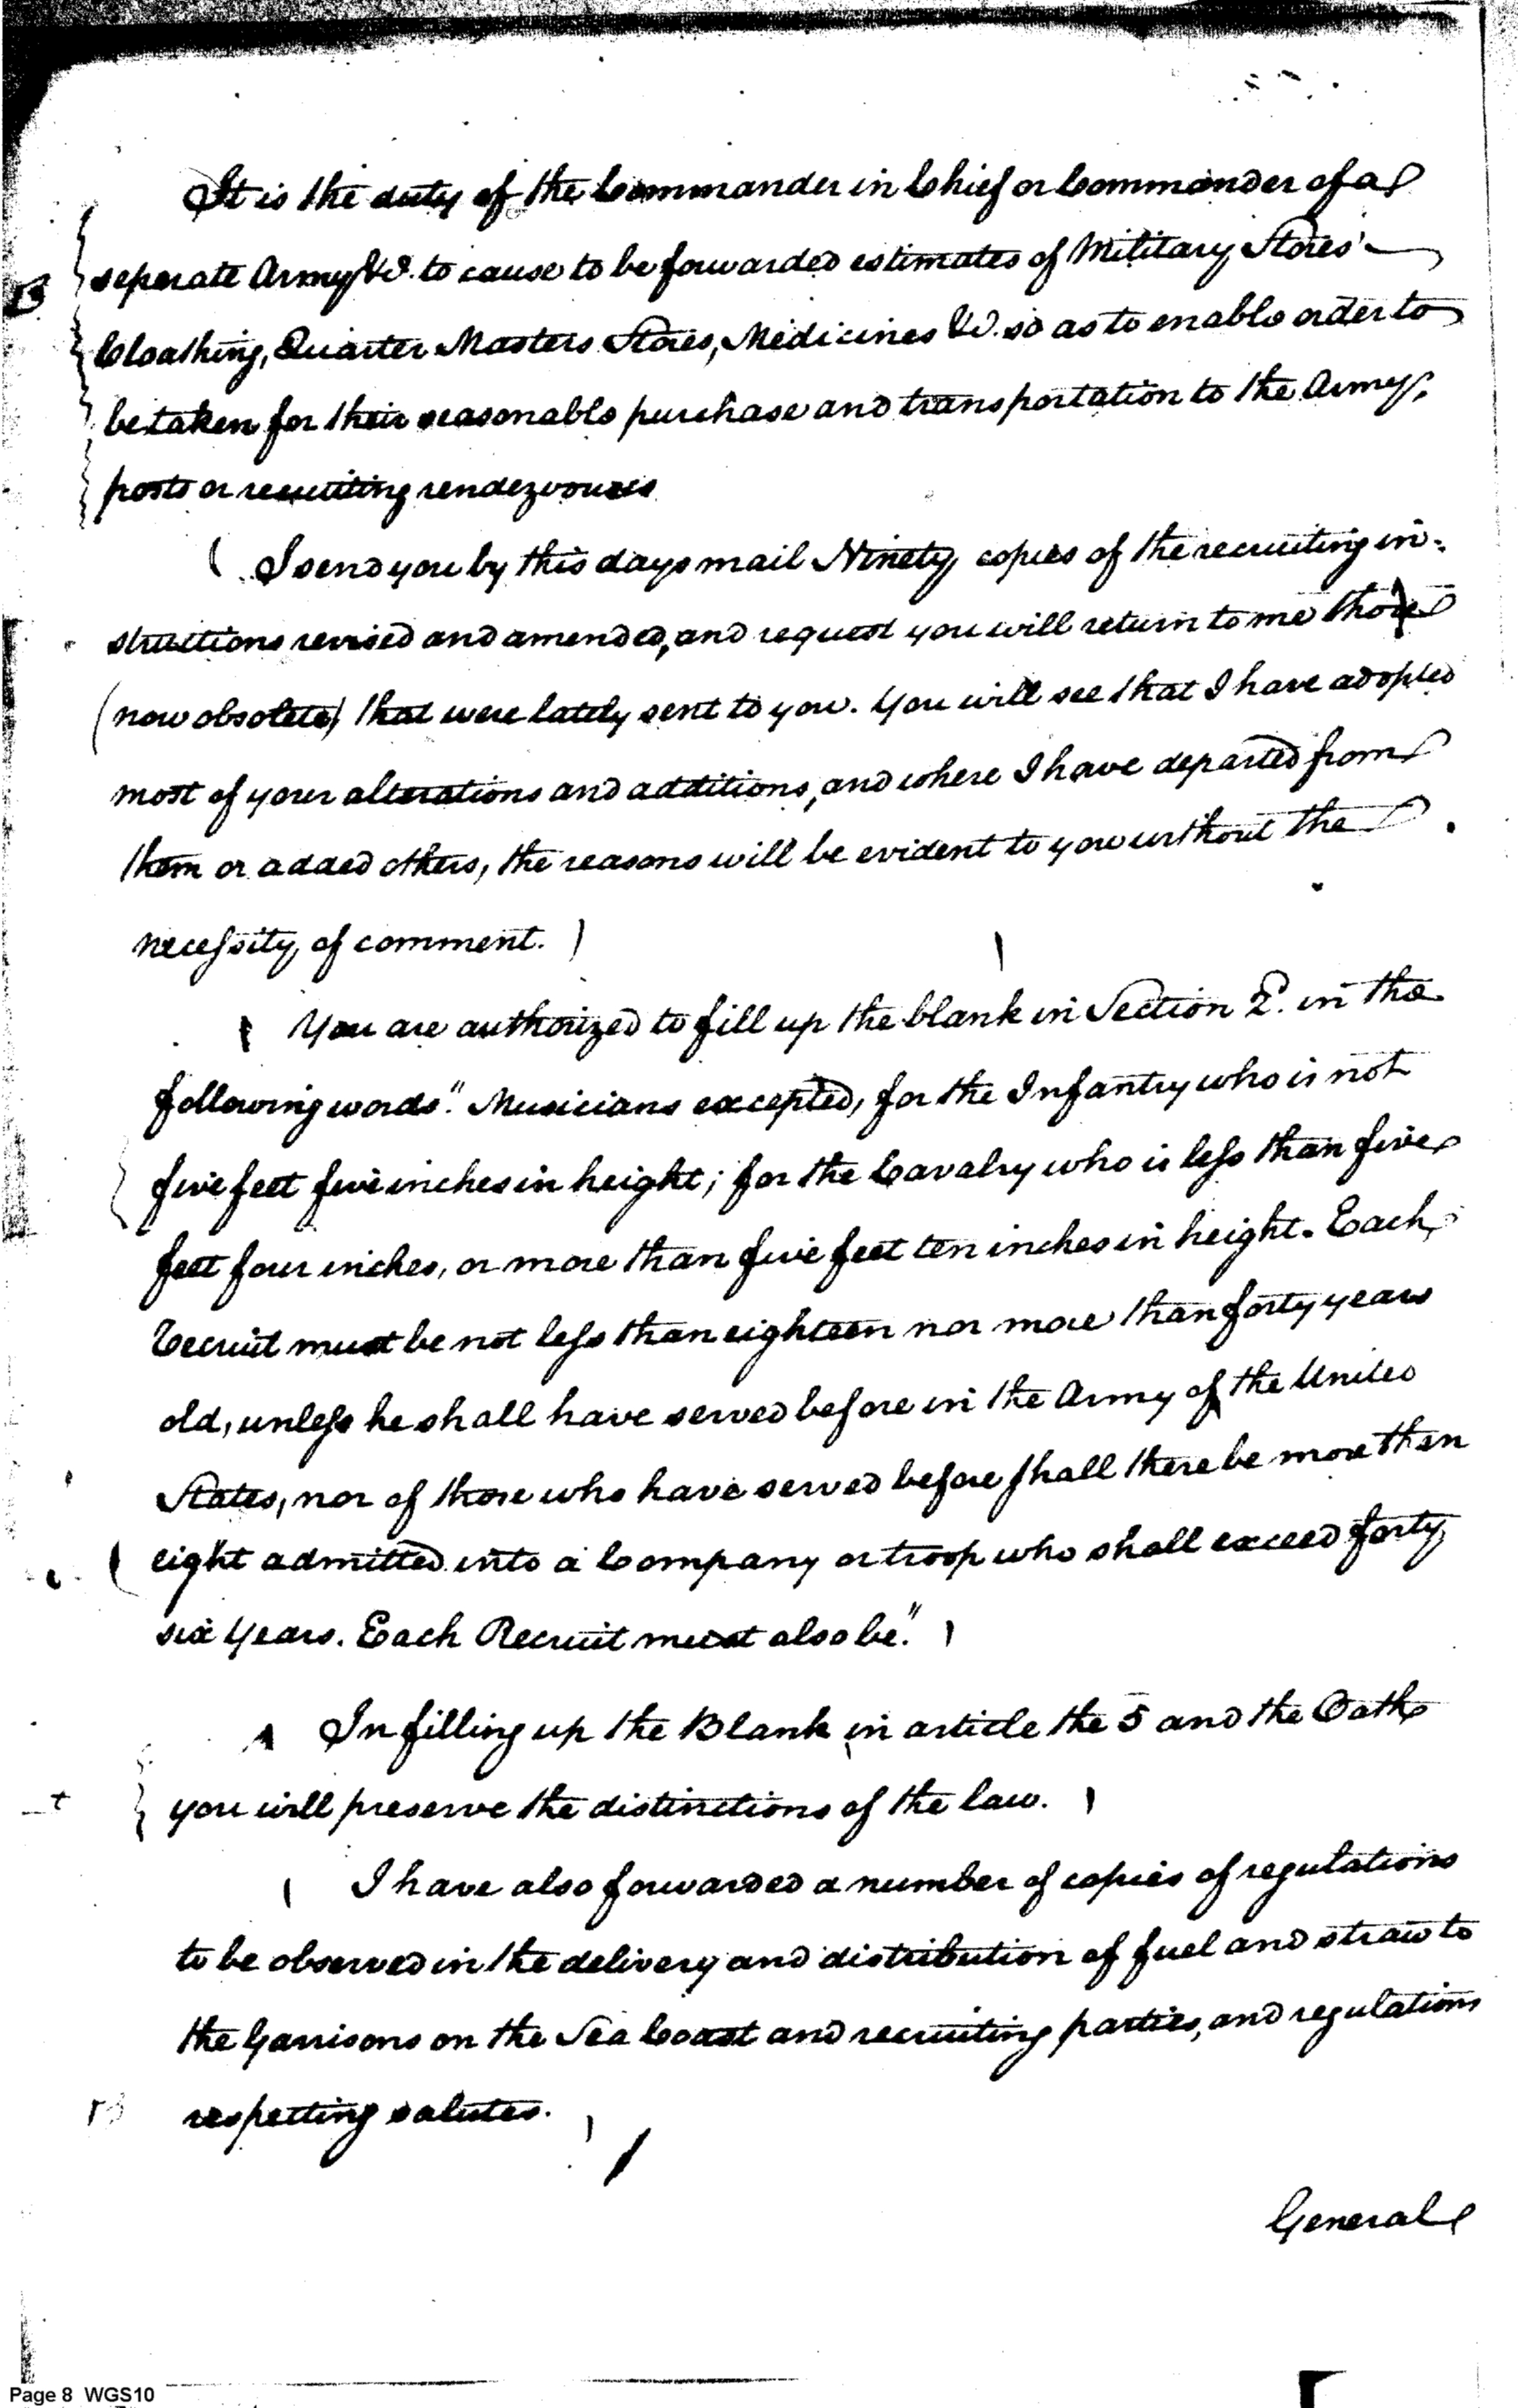 It is the duty of the Commander in Chief or Commander of a
seperate Army &c. to cause to be forwarded estimates of Military Stores
Cloathing, Quarter Masters Stores, Medicines &c. so as to enable order to
be taken for their seasonable purchase and transportation to the Army,
posts or recruiting rendezvouses
( I send you by this days mail Ninety copies of the recruiting in-
structions revised and amended, and request you will return to me those
(now obsolete) that were lately sent to you. You will see that I have adopted
most of your alterations and additions, and where I have departed from
them or added others, the reasons will be evident to you without the
necessity of comment. )
( You are authorized to fill up the blank in Section 2. in the
following words "Musicians excepted, for the Infantry who is not
five feet five inches in height; for the Cavalry who is less than five
feet four inches, or more than five feet ten inches in height. Each
Recruit must be not less than eighteen nor more than forty years
old, unless he shall have served before in the Army of the United
States, nor of those who have served before shall there be more than
eight admitted into a Company or troop who shall exceed forty
six Years. Each Recruit must also be." )
In filling up the Blank in article the 5 and the Oath
you will preserve the distinctions of the law. )
( I have also forwarded a number of copies of regulations
to be observed in the delivery and distribution of fuel and straw to
the Garrisons on the Sea Coast and recruiting parties, and regulations
respecting salutes. )
General
Page 8 WGS10